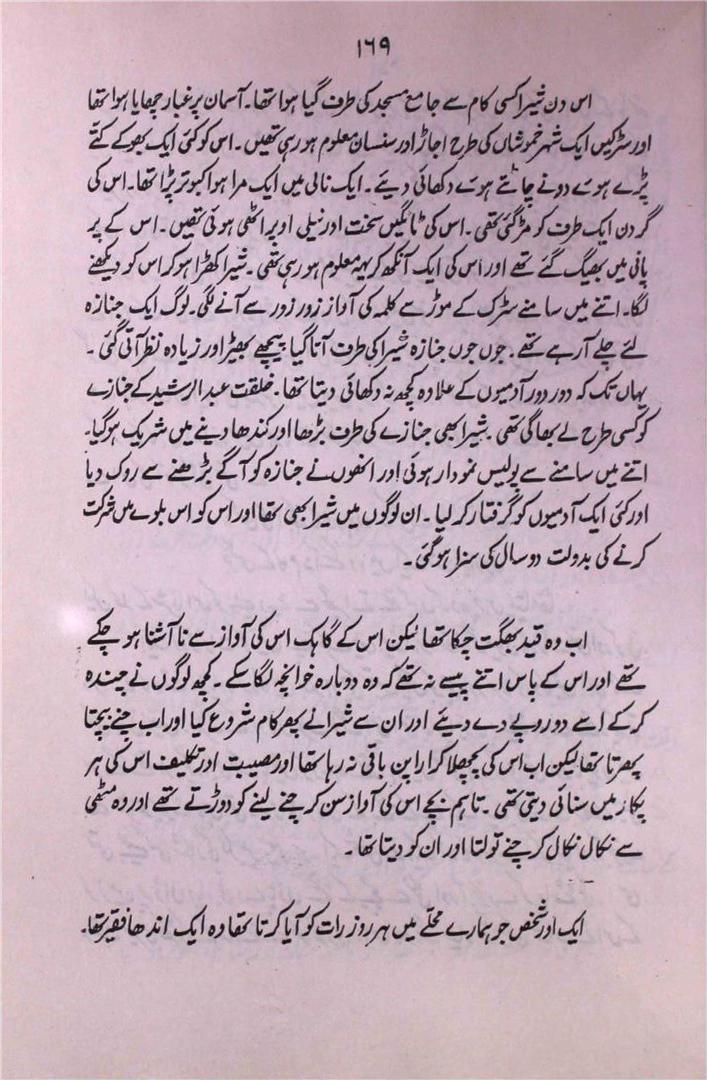 ۱۶۹
اس دن شیرا کسی کام سے جامع مسجد کی طرف گیا ہوا تھا۔ آسمان پر غبار چھایا ہوا تھا
اور سڑکیں ایک شہر خموشاں کی طرح اجاڑ اور سنسان معلوم ہو رہی تھیں۔ اس کو کئی ایک بھوکے کتے
پڑے ہوے دونے چاٹتے ہوے دکھائی دیئے۔ ایک نالی میں ایک مرا ہوا کبوتر پڑا تھا۔ اس کی
گردن ایک طرف کو مڑ گئی تھی۔ اس کی ٹانگیں سخت اور نیلی اوپر اٹھی ہوئی تھیں۔ اس کے پر
پانی میں بھیگ گئے تھے اور اس کی ایک آنکھ کریہہ معلوم ہو رہی تھی۔ شیرا کھڑا ہو کر اس کو دیکھنے
لگا۔ اتنے میں سامنے سڑک کے موڑ سے کلمہ کی آواز زور زور سے آنے لگی۔ لوگ ایک جنازہ
لئے چلے آ رہے تھے۔ جوں جوں جنازہ شیرا کی طرف آتا گیا پیچھے بھیڑ اور زیادہ نظر آتی گئی۔
یہاں تک کہ دور دور آدمیوں کے علاوہ کچھ نہ دکھائی دیتا تھا۔ خلقت عبدالرشید کے جنازے
کو کسی طرح لے بھاگی تھی۔ شیرا بھی جنازے کی طرف بڑھا اور کندھا دینے میں شریک ہو گیا۔
اتنے میں سامنے سے پولیس نمودار ہوئی اور انھوں نے جنازہ کو آگے بڑھنے سے روک دیا
اور کئی ایک آدمیوں کو گرفتار کر لیا۔ ان لوگوں میں شیرا بھی تھا اور اس کو اس بلوے میں شرکت
کرنے کی بدولت دو سال کی سزا ہو گئی۔
اب وہ قید بھگت چکا تھا لیکن اس کے گاہک اس کی آواز سے ناآشنا ہو چکے
تھے اور اس کے پاس اتنے پیسے نہ تھے کہ وہ دوبارہ خوانچہ لگا سکے۔ کچھ لوگوں نے چندہ
کر کے اسے دو روپے دے دیئے اور ان سے شیرا نے پھر کام شروع کیا اور اب چنے بیچتا
پھرتا تھا لیکن اب اس کی پچھلا کرارا پن باقی نہ رہا تھا اور مصیبت اور تکلیف اس کی ہر
پکار میں سنائی دیتی تھی۔ تاہم بچے اس کی آواز سن کر چنے لینے کو دوڑتے تھے اور وہ مٹھی
سے نکال نکال کر چنے تولتا اور ان کو دیتا تھا۔
ایک اور شخص جو ہمارے محلے میں ہر روز رات کو آیا کرتا تھا وہ ایک اندھا فقیر تھا۔